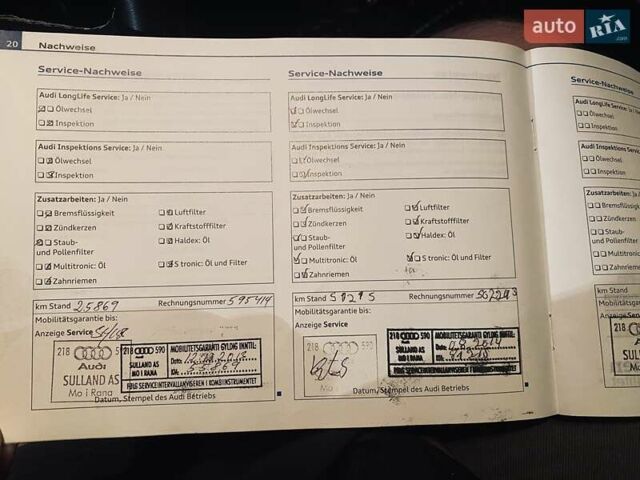 auto RIA.com
20 Nachweise
Service-Nachweise
Audi LongLife Service: Ja / Nein
Ölwechsel
Inspektion
Audi Inspektions Service: Ja / Nein
Ölwechsel
Inspektion
Zusatzarbeiten: Ja / Nein
Bremsflüssigkeit
Luftfilter
Zündkerzen
Kraftstofffilter
Staub-
und Pollenfilter
Haldex: Öl
Multitronic: Öl
S tronic: Öl und Filter
Zahnriemen
km Stand 25869 Rechnungsnummer 595414
Mobilitätsgarantie bis:
Anzeige Service
218 590
Audi
SULLAND AS
Mo i Rana
218 590
SULLAND AS
MO I RANA
MOBILITETSGARANTI GYLDIG INNTIL:
Dato:
KM:
FØLG SERVICEINTERVALLANVISEREN I KOMBIINSTRUMENTET
Datum, Stempel des Audi Betriebs
Service-Nachweise
Audi LongLife Service: Ja / Nein
Ölwechsel
Inspektion
Audi Inspektions Service: Ja / Nein
Ölwechsel
Inspektion
Zusatzarbeiten: Ja / Nein
Bremsflüssigkeit
Luftfilter
Zündkerzen
Kraftstofffilter
Staub-
und Pollenfilter
Haldex: Öl
Multitronic: Öl
S tronic: Öl und Filter
Zahnriemen
km Stand Rechnungsnummer
Mobilitätsgarantie bis:
Anzeige Service
218 590
Mo i
218 590
SULLAND AS
MO I RANA
MOBILITETSGARANTI GYLDIG INNTIL:
Dato:
KM:
FØLG SERVICEINTERVALLANVISEREN I KOMBIINSTRUMENTET
Datum, Stempel des Audi Betriebs
Service-Nachweise
Audi LongLife
Ölwechsel
Inspektion
Audi Inspektions
Ölwechsel
Inspektion
Zusatzarbeiten:
Bremsflüssig
Zündkerzen
Staub-
und Pollenfilter
Multitronic:
Zahnriemen
km Stand
Mobilitätsgarantie
Anzeige Service